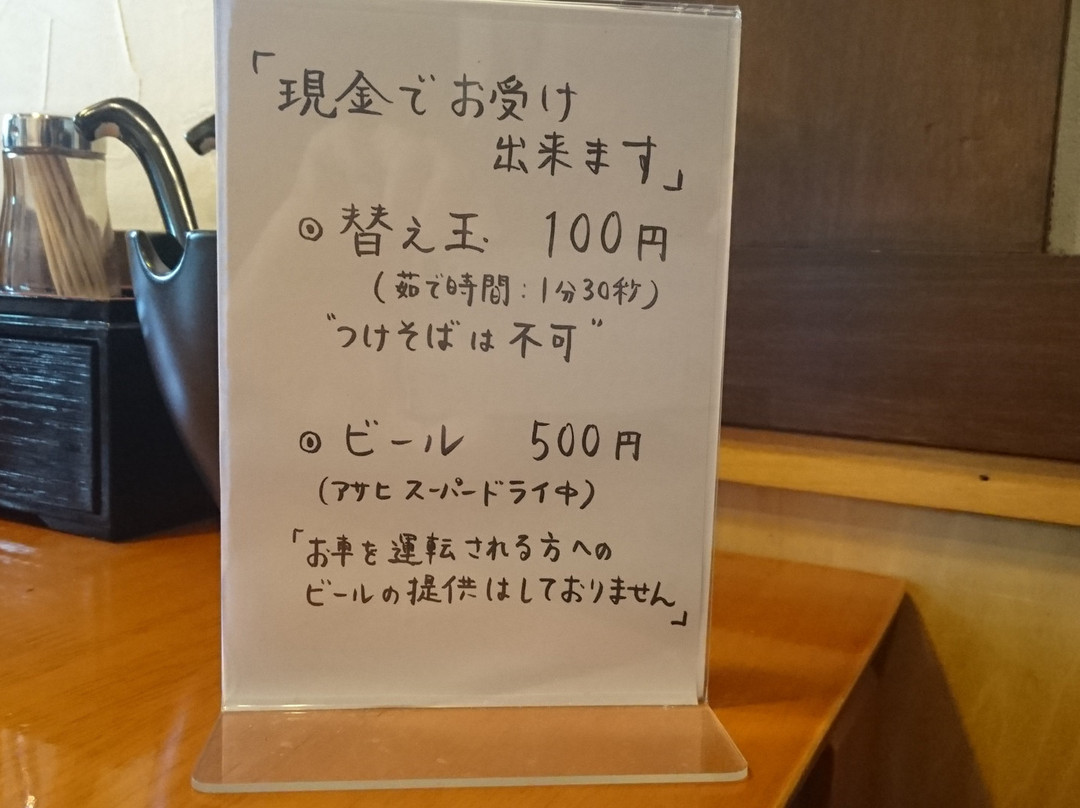 「現金でお受け
出来ます」
◎替え玉 100円
(茹で時間:1分30秒)
"つけそばは不可"
◎ビール 500円
(アサヒスーパードライ中)
「お車を運転される方への
ビールの提供はしておりません」